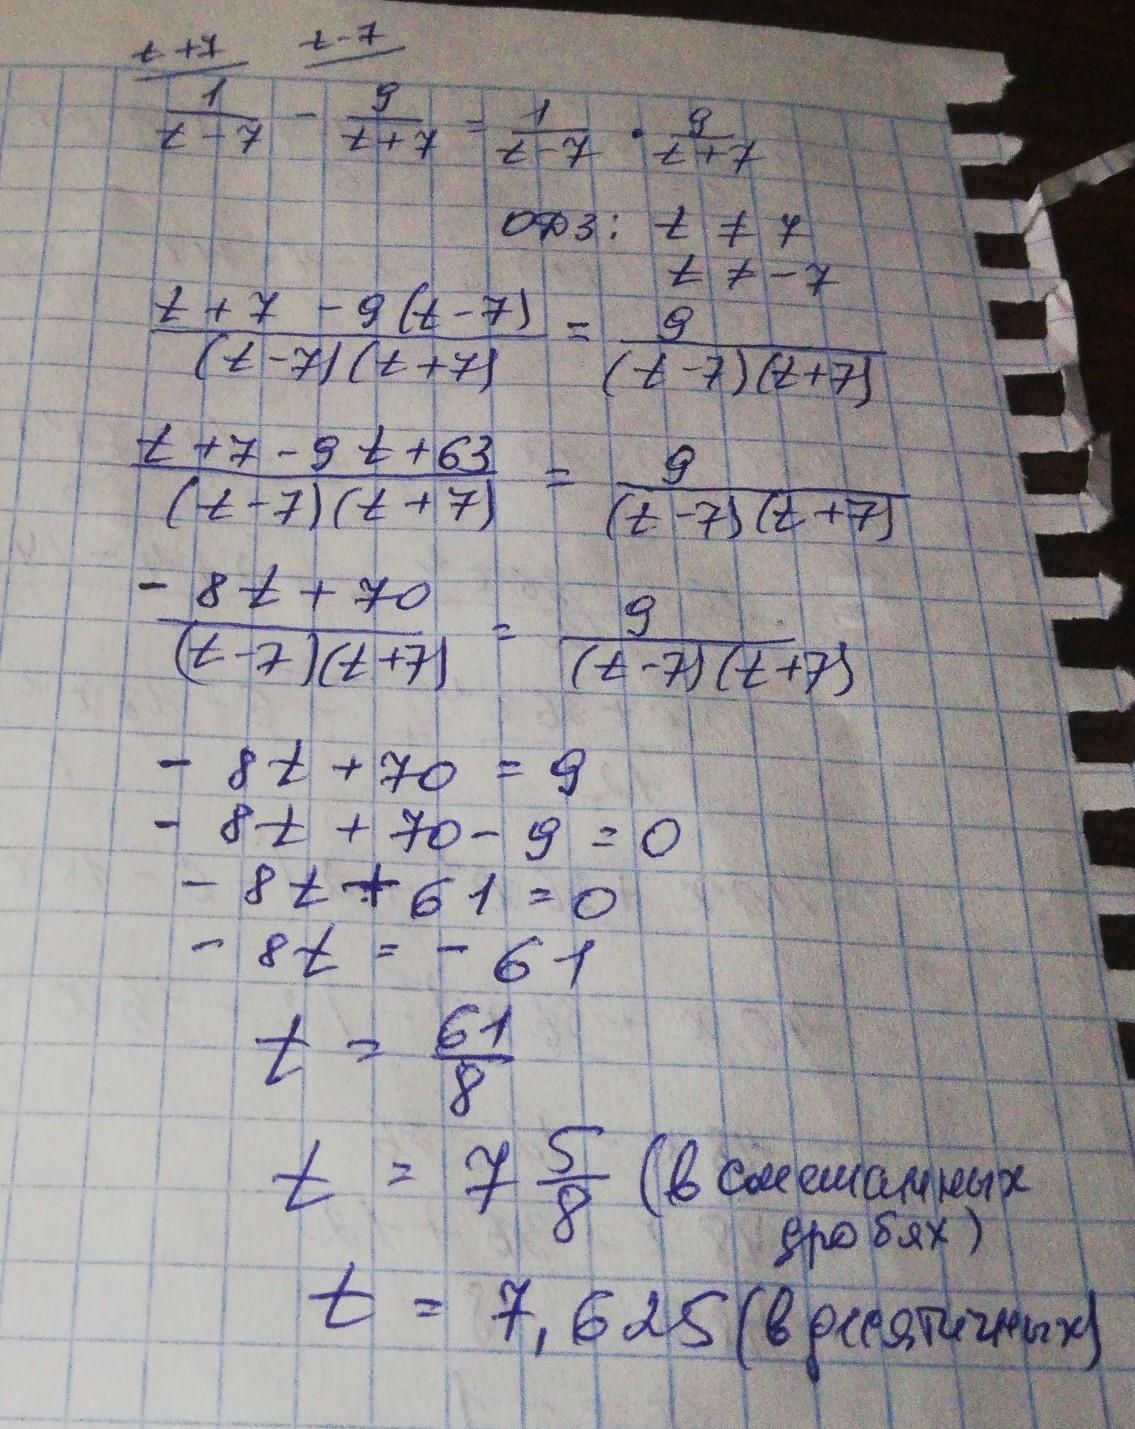 t+7 t-7
1/(t-7) - 9/(t+7) = 1/(t-7) · 9/(t+7)
ОДЗ: t ≠ 7
t ≠ -7
(t+7 - 9(t-7))/((t-7)(t+7)) = 9/((t-7)(t+7))
(t+7-9t+63)/((t-7)(t+7)) = 9/((t-7)(t+7))
(-8t+70)/((t-7)(t+7)) = 9/((t-7)(t+7))
-8t+70 = 9
-8t+70-9 = 0
-8t+61 = 0
-8t = -61
t = 61/8
t = 7 5/8 (в смешанных
дробях)
t = 7,625 (в десятичных)